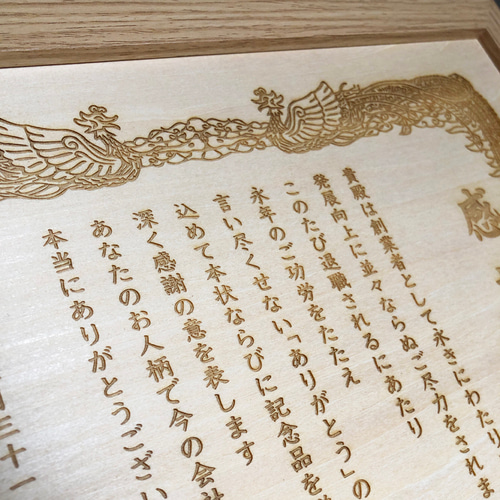 感
貴殿は創業者として永きにわたり
発展向上に並々ならぬご尽力をされま
このたび退職されるにあたり
永年のご功労をたたえ
言い尽くせない「ありがとう」の
込めて本状ならびに記念品を
深く感謝の意を表します
あなたのお人柄で今の会社
本当にありがとうござい
三十一